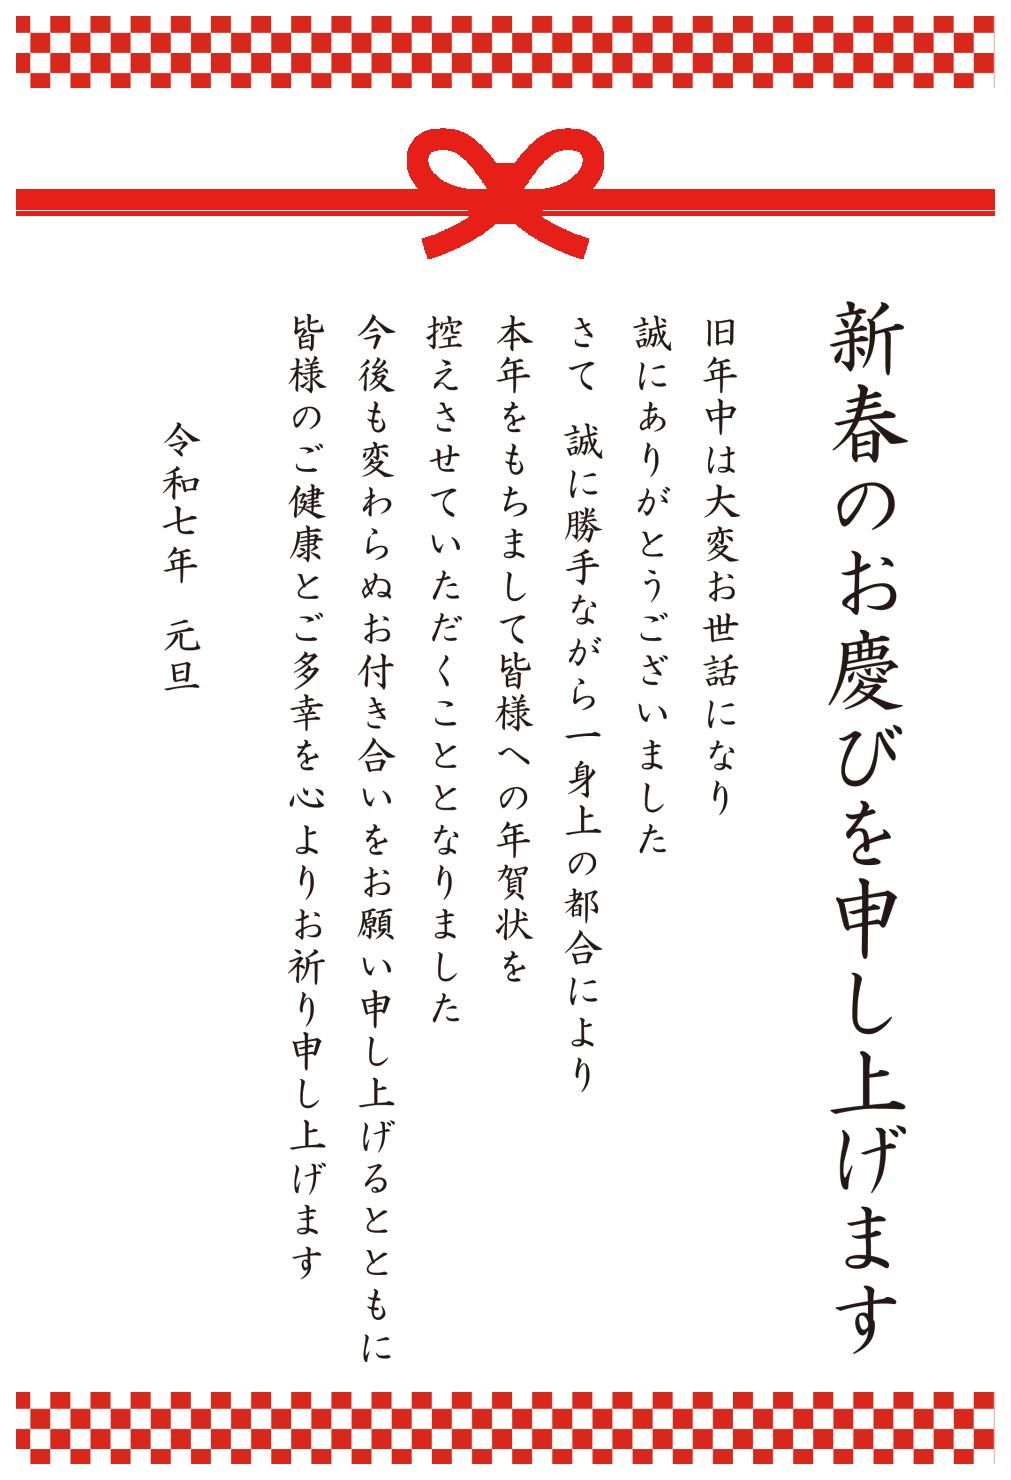 新春のお慶びを申し上げます
旧年中は大変お世話になり
誠にありがとうございました
さて　誠に勝手ながら一身上の都合により
本年をもちまして皆様への年賀状を
控えさせていただくこととなりました
今後も変わらぬお付き合いをお願い申し上げるとともに
皆様のご健康とご多幸を心よりお祈り申し上げます
令和七年　元旦